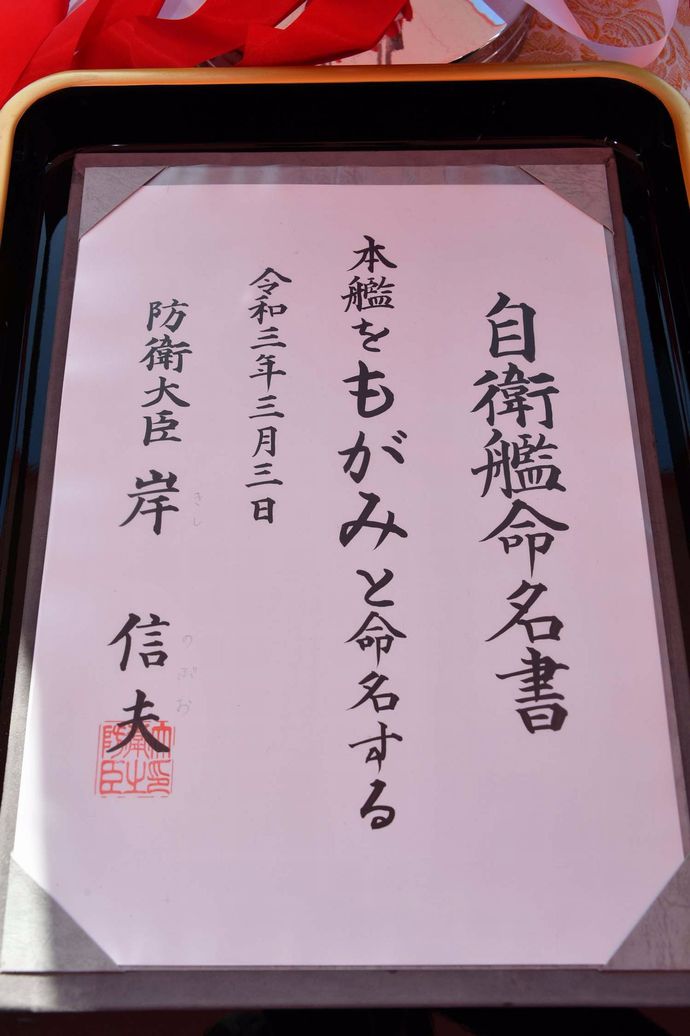 自衛艦命名書
本艦をもがみと命名する
令和三年三月三日
防衛大臣 岸 信夫
きし のぶお
防衛大臣之印